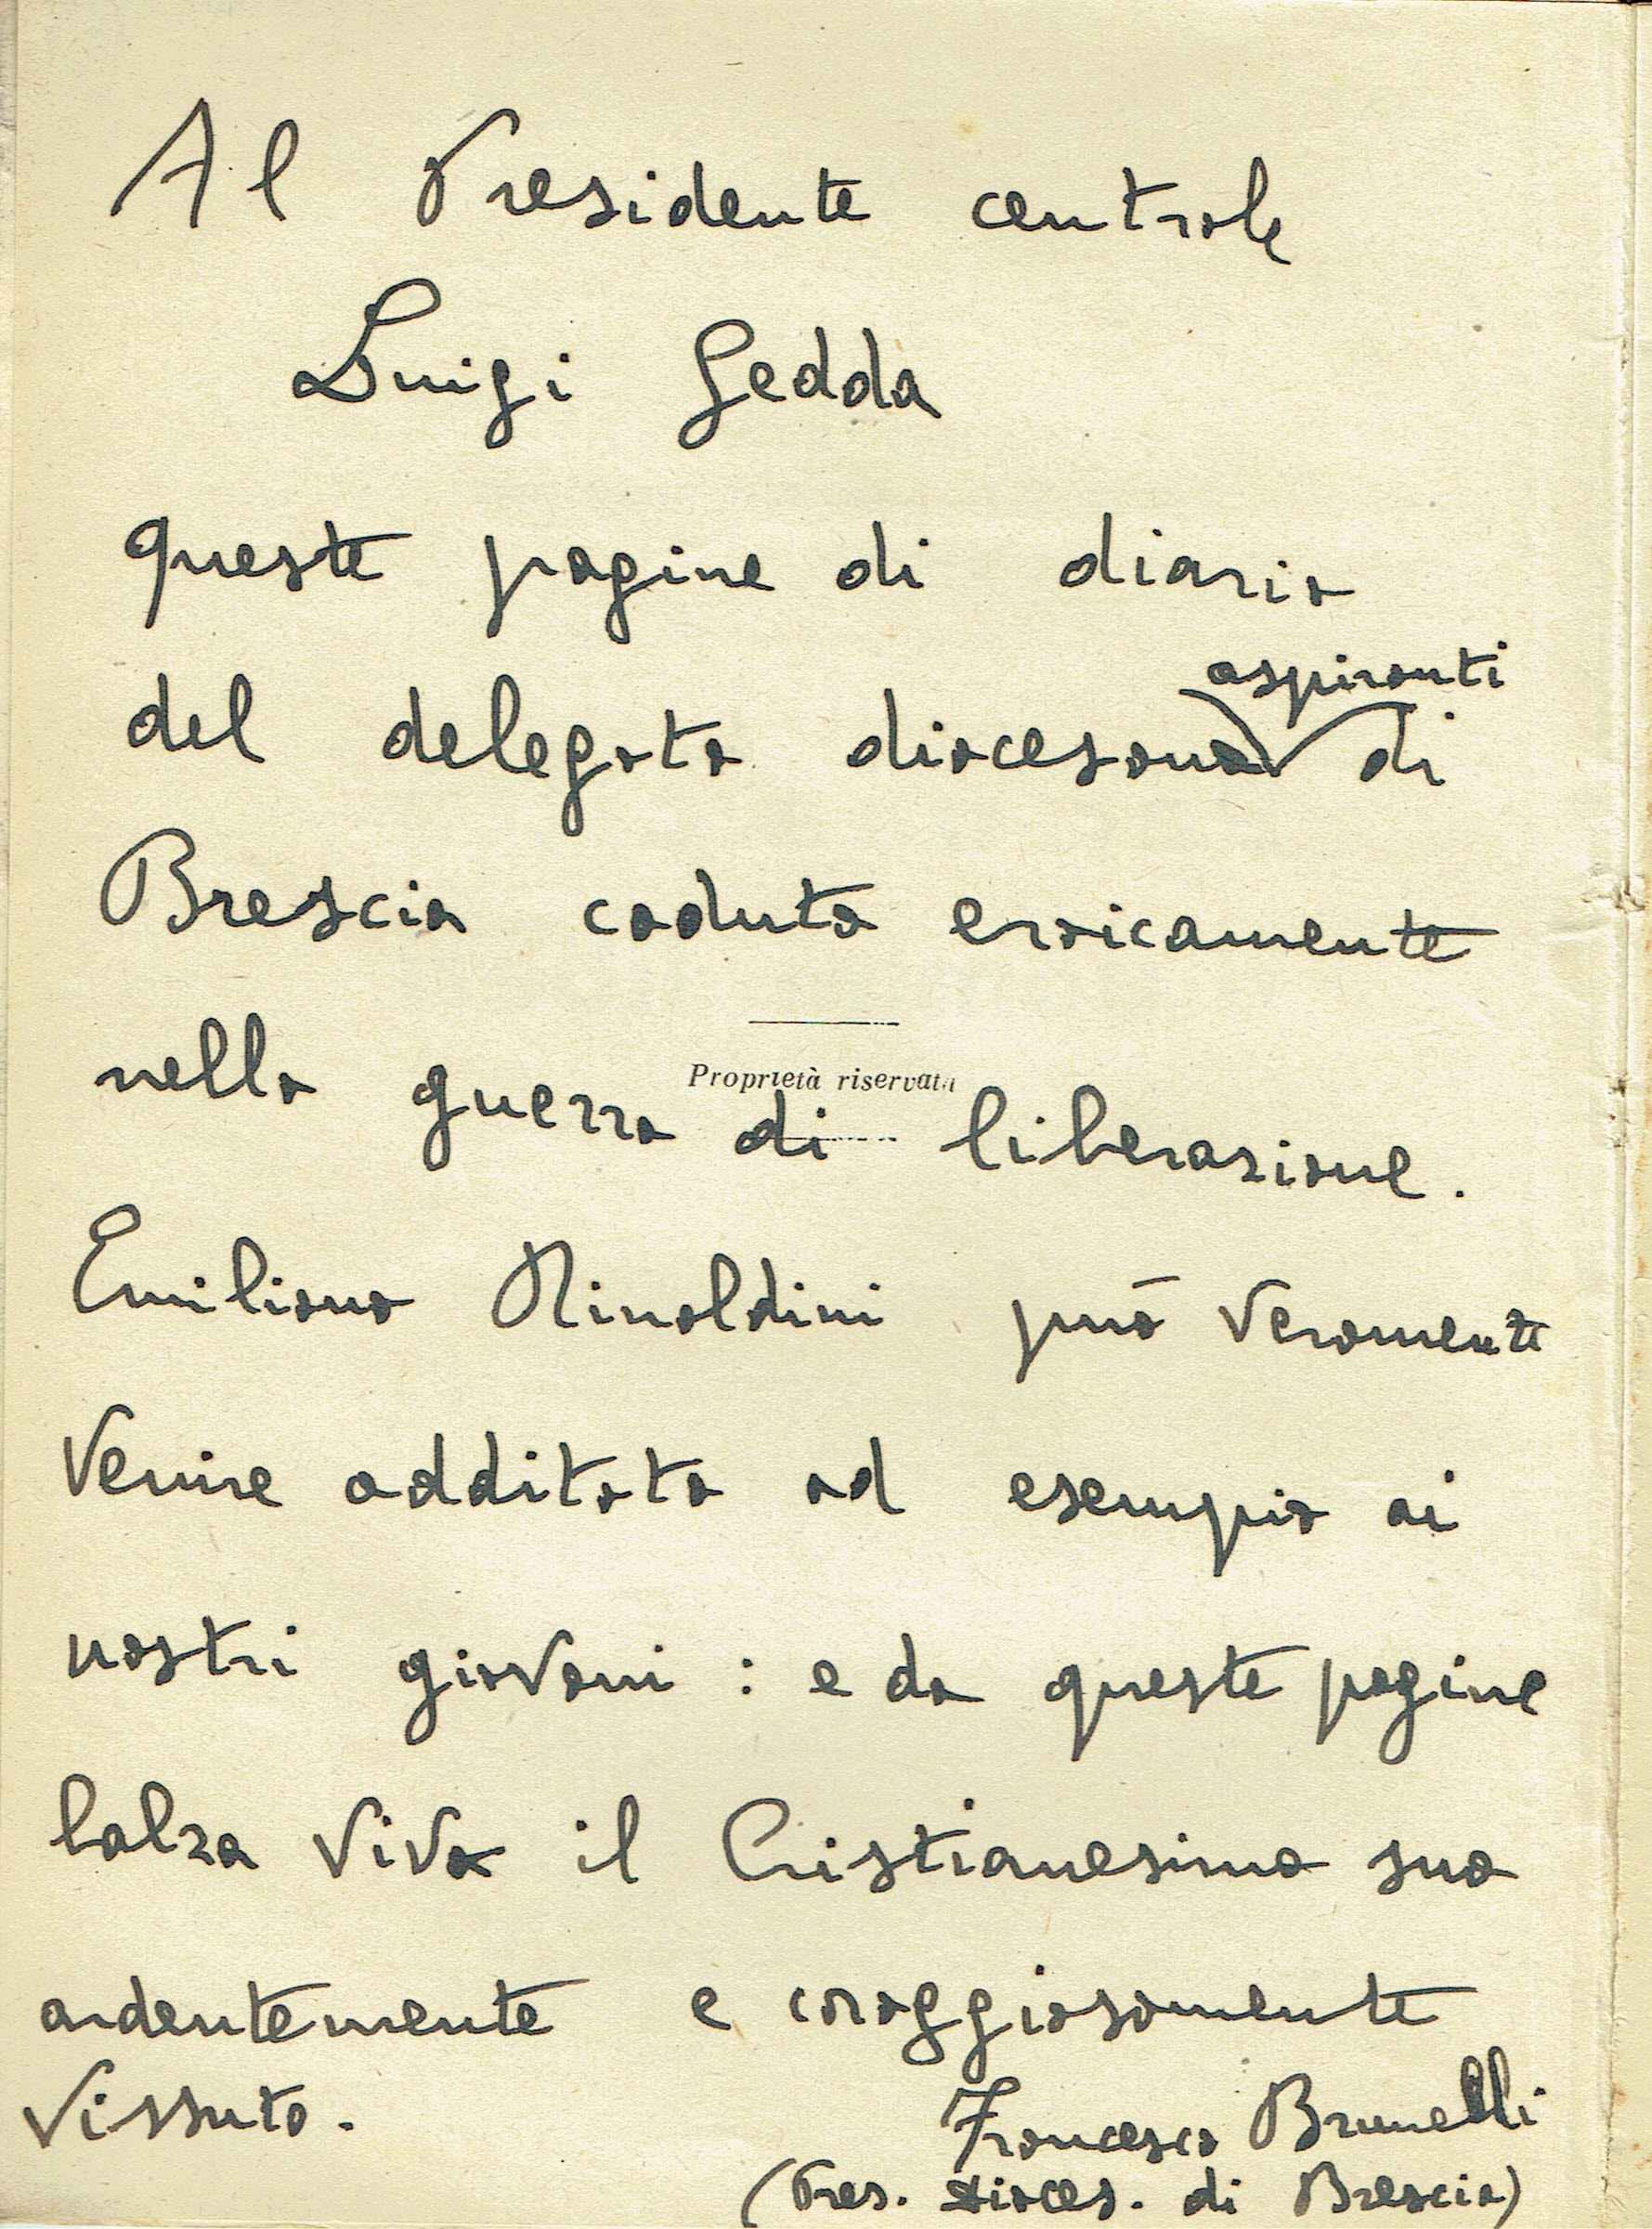 Al Presidente centrale
Luigi Gedda
queste pagine di diario
aspiranti
del delegato diocesano di
Brescia caduto eroicamente
Proprietà riservata
nella guerra di liberazione.
Emiliano Rinaldini può veramente
venire additato ad esempio ai
nostri giovani : e da queste pagine
balza vivo il Cristianesimo suo
ardentemente e coraggiosamente
vissuto.
Francesco Brunelli
(Pres. dioces. di Brescia)